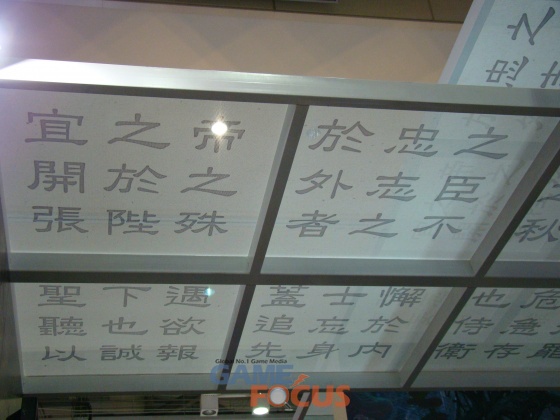 秋也侍衛
之臣不懈於內
忠志之士忘身
於外者蓋追先
帝之殊遇欲報
之於陛下也誠
宜開張聖聽以
Global No.1 Game Media
GAME FOCUS